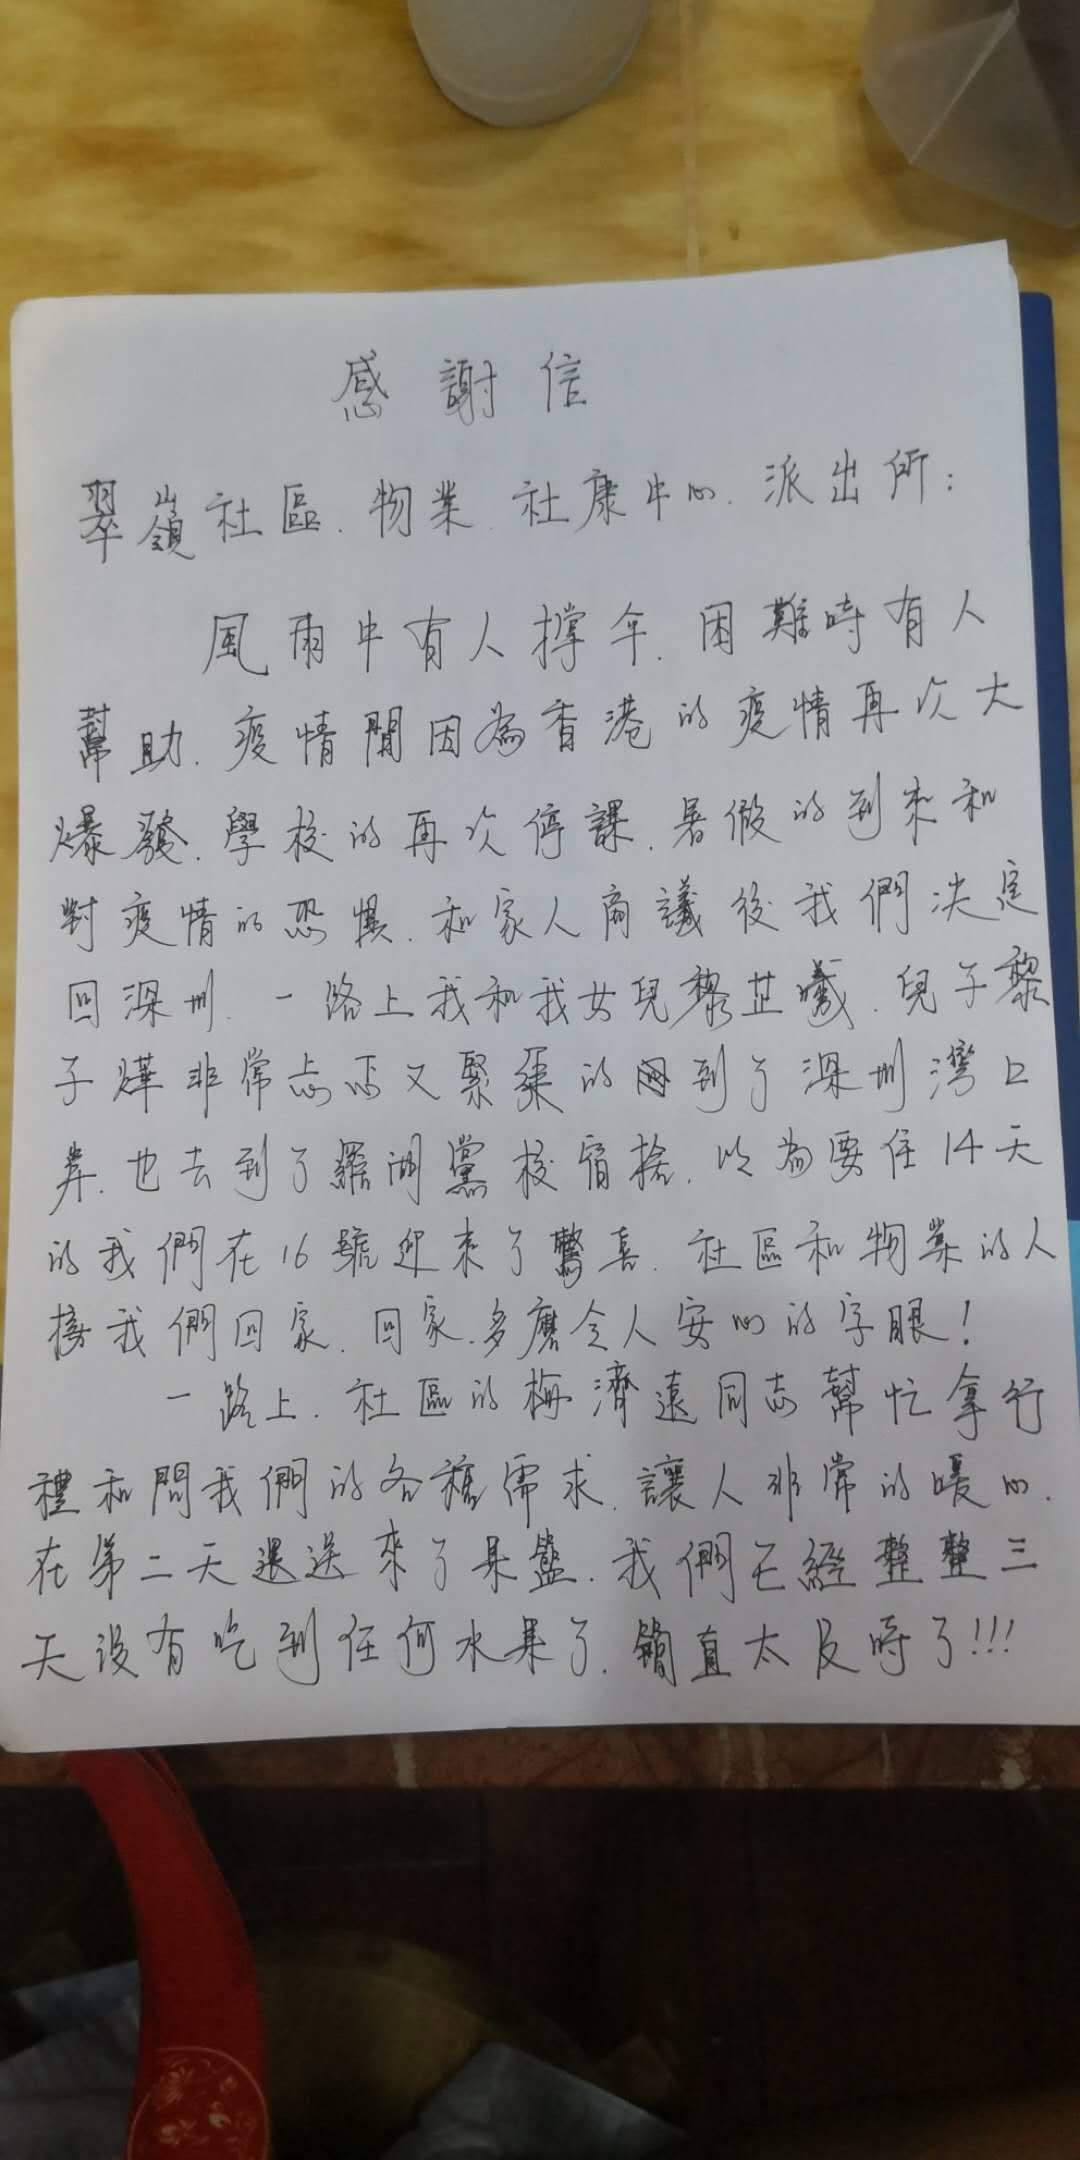 感謝信
翠嶺社區、物業、社康中心、派出所:
風雨中有人撐傘、困難時有人
幫助、疫情間因為香港的疫情再次大
爆發、學校的再次停課、暑假的到來和
對疫情的恐惧、和家人商議後我們决定
回深圳、一路上我和我女兒黎芷曦、兒子黎
子燁非常忐忑又緊張的到了深圳灣口
岸、也去到了羅湖黨校宿捨、以為要住14天
的我們在16號迎來了驚喜、社區和物業的人
接我們回家、回家、多麼令人安心的字眼!
一路上、社區的梅濟遠同志幫忙拿行
禮和問我們的各種需求、讓人非常的暖心、
在第二天還送來了果籃、我們已經整整三
天沒有吃到任何水果了、簡直太及時了!!!